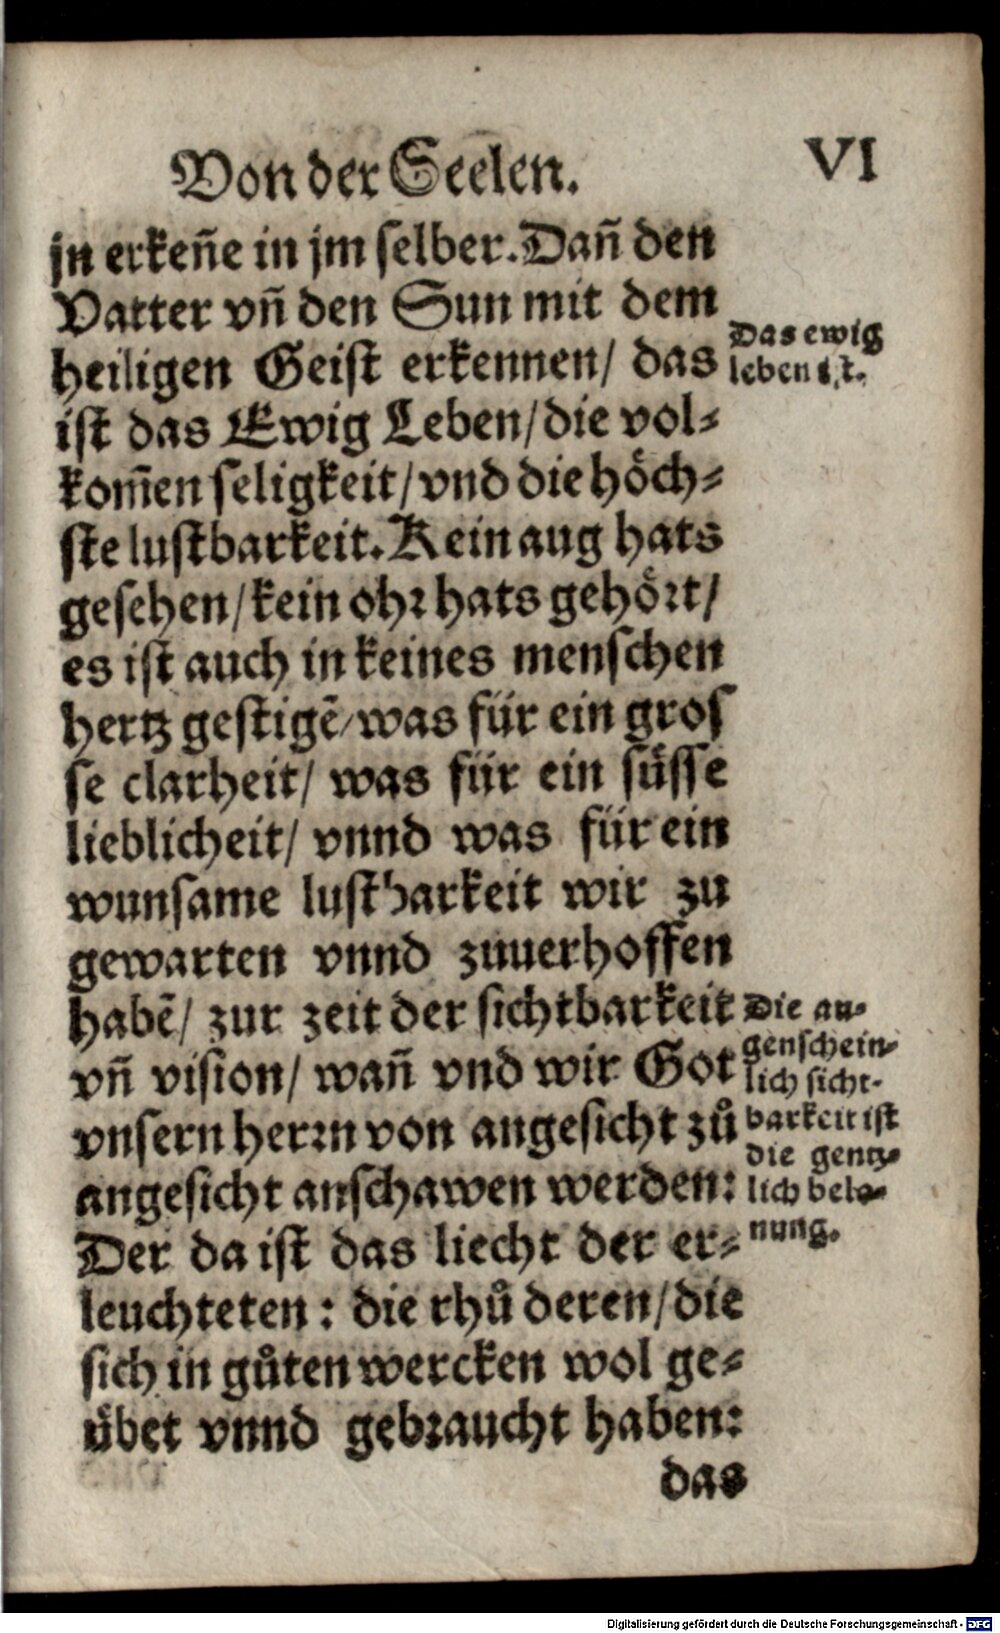 Von der Seelen.
VI
jn erkeñe in jm selber. Dañ den
Vatter vñ den Sun mit dem
heiligen Geist erkennen/ das
ist das Ewig Leben/ die vol⸗
kom̃en seligkeit/ vnd die hoͤch⸗
ste lustbarkeit. Kein aug hats
gesehen/ kein ohr hats gehoͤrt/
es ist auch in keines menschen
hertz gestigẽ/ was für ein gros
se clarheit/ was für ein suͤsse
lieblicheit/ vnnd was für ein
wunsame lustbarkeit wir zu
gewarten vnnd zuuerhoffen
habẽ/ zur zeit der sichtbarkeit
vñ vision/ wañ vnd wir Got
vnsern herrn von angesicht zů
angesicht anschawen werden:
Der da ist das liecht der er⸗
leuchteten: die rhů deren/ die
sich in gůten wercken wol ge⸗
uͤbet vnnd gebraucht haben:
das
Das ewig
leben ist.
Die au⸗
genschein⸗
lich sicht⸗
barkeit ist
die gentz⸗
lich belo⸗
nung.
Digitalisierung gefördert durch die Deutsche Forschungsgemeinschaft - DFG